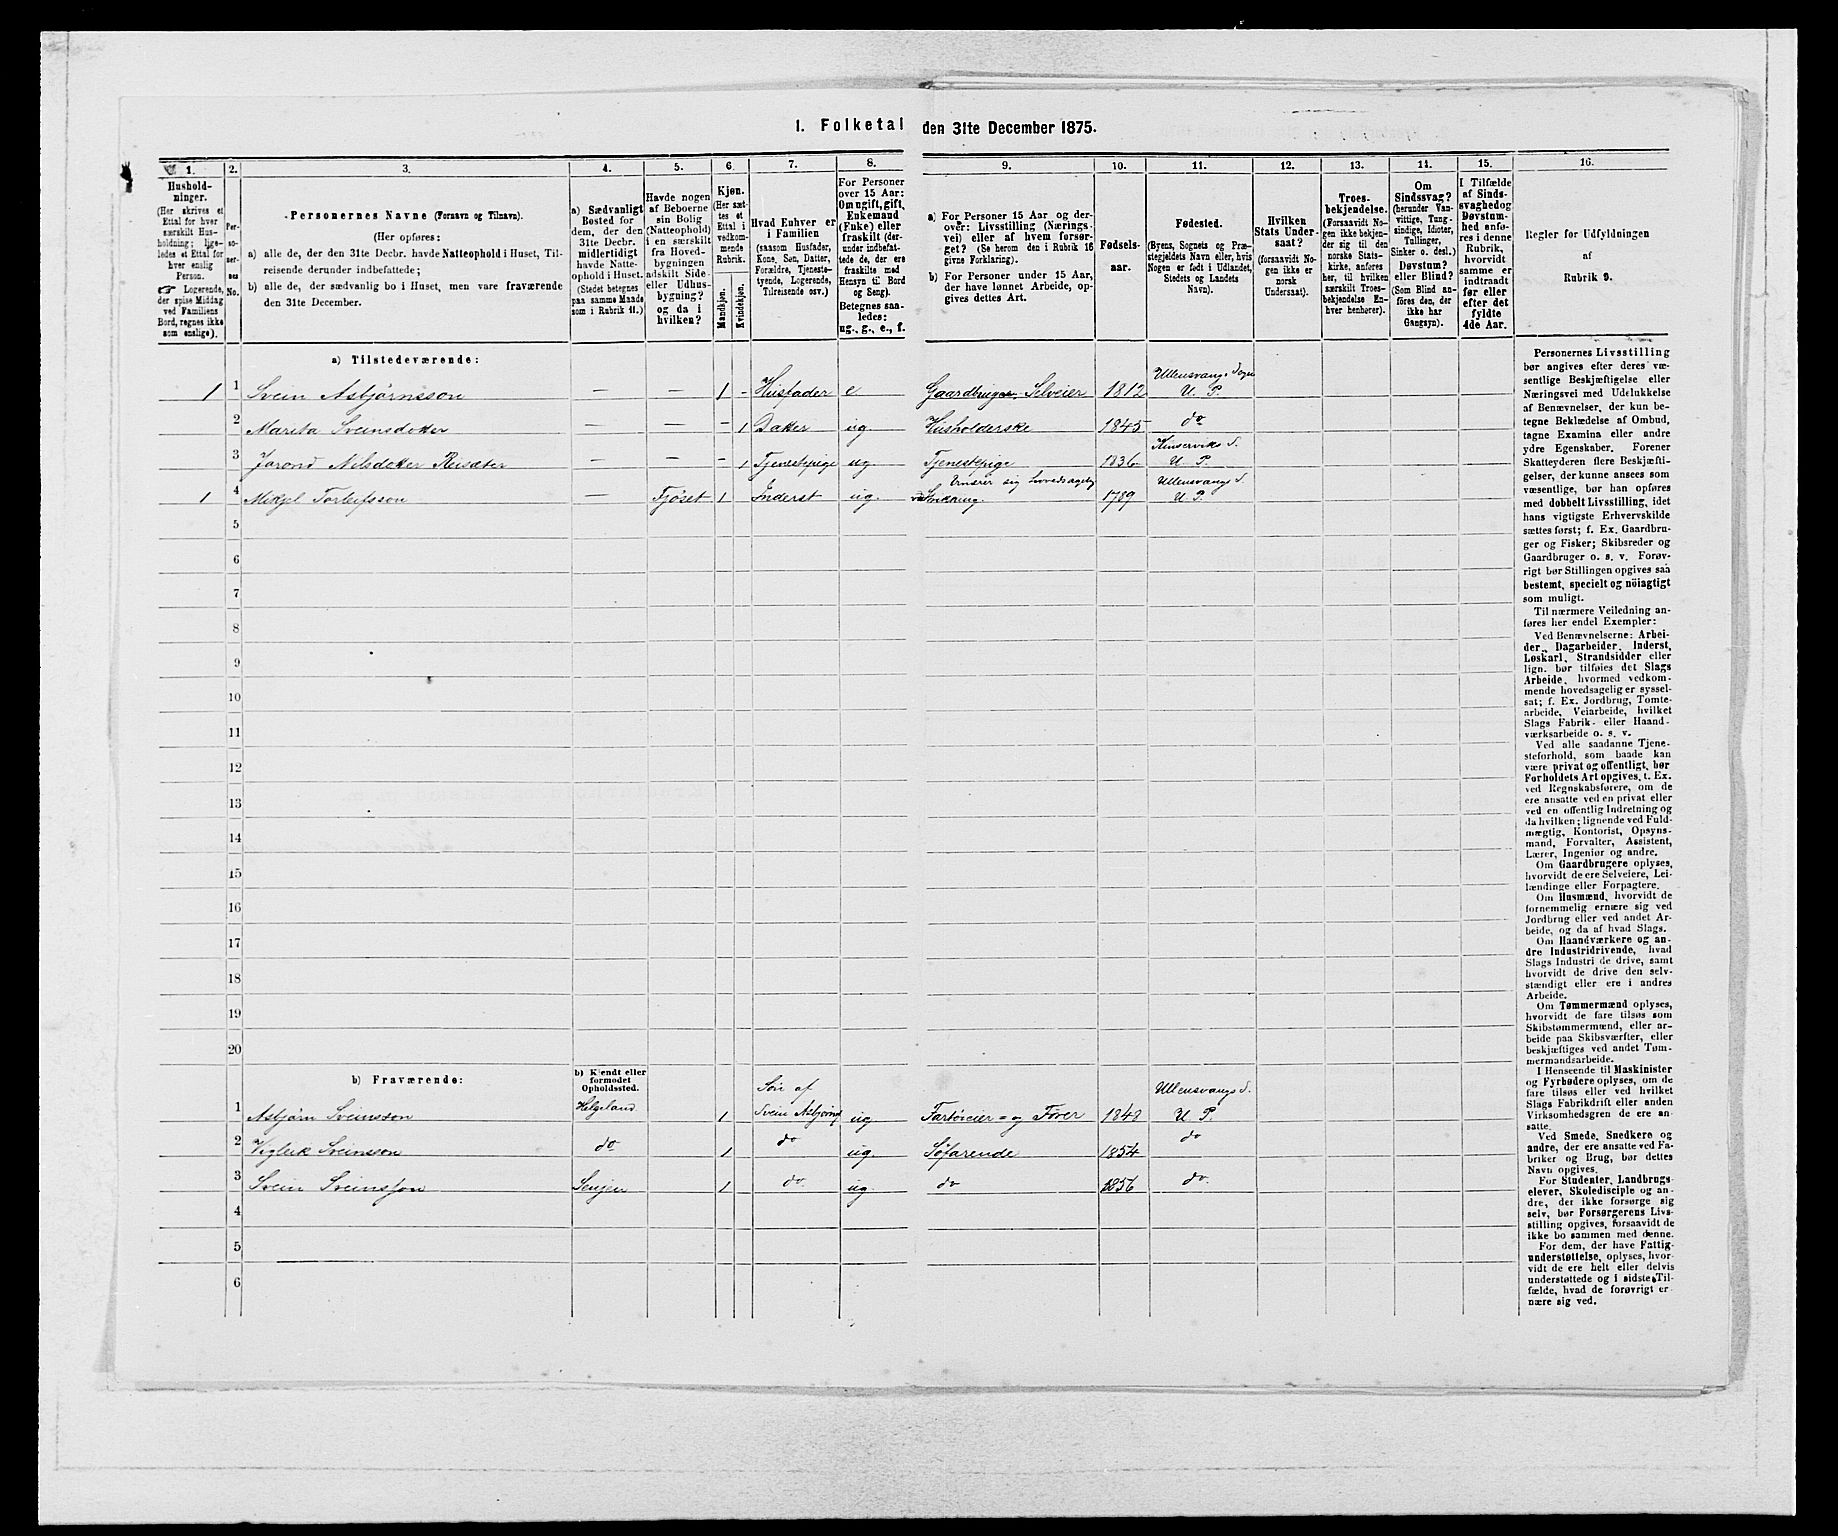 1. Folketal den 31te December 1875.
1. 2. 3. 4. 5. 6. 7. 8. 9. 10. 11. 12. 13. 14. 15. 16.
Hushold-
ninger.
(Her skrives et
Ettal for hver
særskilt Hus-
holdning; lige-
ledes et Ettal for
hver enslig
Person.
☞ Logerende,
der spise Middag
ved Familiens
Bord, regnes ikke
som enslige).
Per-
so-
ner-
nes
No.
Personernes Navne (Fornavn og Tilnavn).
(Her opføres:
a) alle de, der den 31te Decbr. havde Natteophold i Huset, Til-
reisende derunder indbefattede;
b) alle de, der sædvanlig bo i Huset, men vare fraværende
den 31te December.
a) Sædvanligt
Bosted for
dem, der den
31te Decbr.
midlertidigt
havde Natte-
ophold i Huset.
(Stedet betegnes
paa samme Maade
som i Rubrik 11.)
Havde nogen
af Beboerne
sin Bolig
(Natteophold)
i en særskilt
fra Hoved-
bygningen
adskilt Side-
eller Udhus-
bygning?
og da i
hvilken?
Kjøn.
(Her sæt-
tes et
Ettal i
vedkom-
mende
Rubrik.
Mandkjøn.
Kvindekjøn.
Hvad Enhver er
i Familien
(saasom Husfader,
Kone, Søn, Datter,
Forældre, Tjeneste-
tyende, Logerende,
Tilreisende osv.)
For Personer
over 15 Aar:
Om ugift, gift,
Enkemand
(Enke) eller
fraskilt (der-
under indbefat-
tede de, der ere
fraskilte med
Hensyn til Bord
og Seng).
Betegnes saa-
ledes:
ug., g., e., f.
a) For Personer 15 Aar og der-
over: Livsstilling (Nærings-
vei) eller af hvem forsør-
get? (Se herom den i Rubrik 16
givne Forklaring).
b) For Personer under 15 Aar,
der have lønnet Arbeide, op-
gives dettes Art.
Fødsels-
aar.
Fødested.
(Byens, Sognets og Præ-
stegjeldets Navn eller, hvis
Nogen er født i Udlandet,
Stedets og Landets
Navn).
Hvilken
Stats Under-
saat?
(forsaavidt No-
gen ikke er
norsk
Undersaat).
Troes-
bekjendelse.
(Forsaavidt No-
gen ikke bekjen-
der sig til den
norske Stats-
kirke, anføres
her, til hvilken
særskilt Troes-
bekjendelse En-
hver henhører).
Om
Sindssvag?
(herunder Van-
vittige, Tung-
sindige, Idioter,
Tullinger,
Sinker o. desl.)
Døvstum?
eller Blind?
(Som Blind an-
føres den, der
ikke har
Gangsyn).
I Tilfælde
af Sinds-
svaghed og
Døvstum-
hed anfø-
res i denne
Rubrik,
hvorvidt
samme er
indtraadt
før eller
efter det
fyldte
4de Aar.
Regler for Udfyldningen
af
Rubrik 9.
a) Tilstedeværende:
1 1 Svein Asbjørnsson — — 1 - Husfader e Gaardbruger, Selveier 1812 Ullensvangs Sogn U. P.
2 Marita Sveinsdoter — — - 1 Doter ug. Husholderske 1845 do
3 Jorond Nilsdotter Reisæter — — - 1 Tjenestepige ug Tjenestepige 1836 Kinserviks S. U. P.
1 4 Mikjel Torleifsson — Fjöset 1 Inderst ug. Ernærer sig hovedsagelig ved Strikking. 1789 Ullensvangs S. U. P.
5
6
7
8
9
10
11
12
13
14
15
16
17
18
19
20
b) Fraværende:
b) Kjendt eller
formodet
Opholdssted.
1 Asbjørn Sveinsson Helgeland 1 Søn af Svein Asbjörns ug Fartøieier = og Fører 1848 Ullensvangs S. U P.
2 Vigleik Sveinsson do 1 do ug. Søfarende 1854 do
3 Svein Sveinsson Senjen 1 do ug. do 1856 do.
4
5
6
Personernes Livsstilling
bør angives efter deres væ-
sentlige Beskjæftigelse eller
Næringsvei med Udelukkelse
af Benævnelser, der kun be-
tegne Beklædelse af Ombud,
tagne Examina eller andre
ydre Egenskaber. Forener
Skatteyderen flere Beskjæfti-
gelser, der kunne ansees som
væsentlige, bør han opføres
med dobbelt Livsstilling, idet
hans vigtigste Erhvervskilde
sættes først; f. Ex. Gaardbru-
ger og Fisker; Skibsreder og
Gaardbruger o. s. v. Forøv-
rigt bør Stillingen opgives saa
bestemt, specielt og nöiagtigt
som muligt.
Til nærmere Veiledning an-
føres her endel Exempler:
Ved Benævnelserne: Arbei-
der, Dagarbeider, Inderst,
Løskarl, Strandsidder eller
lign. bør tilføies det Slags
Arbeide, hvormed vedkom-
mende hovedsagelig er syssel-
sat; f. Ex. Jordbrug, Tomte-
arbeide, Veiarbeide, hvilket
Slags Fabrik- eller Haand-
værksarbeide o. s. v.
Ved alle saadanne Tjene-
steforhold, som baade kan
være privat og offentligt, bør
Forholdets Art opgives, t. Ex.
ved Regnskabsførere, om de
ere ansatte ved en privat eller
ved en offentlig Indretning og
da hvilken; lignende ved Fuld-
mægtig, Kontorist, Opsyns-
mand, Forvalter, Assistent,
Lærer, Ingeniør og andre.
Om Gaardbrugere oplyses,
hvorvidt de ere Selveiere, Lei-
lændinge eller Forpagtere.
Om Husmænd, hvorvidt de
fornemmelig ernære sig ved
Jordbrug eller ved andet Ar-
beide, og da af hvad Slags.
Om Haandværkere og an-
dre Industridrivende, hvad
Slags Industri de drive, samt
hvorvidt de drive den selv-
stændigt eller ere i andres
Arbeide.
Om Tømmermænd oplyses,
hvorvidt de fare tilsøs som
Skibstømmermænd, eller ar-
beide paa Skibsværfter, eller
beskjæftiges ved andet Tøm-
mermandsarbeide.
I Henseende til Maskinister
og Fyrbødere oplyses, om de
fare tilsøs eller ved hvilket
Slags Fabrikdrift eller anden
Virksomhedsgren de ere an-
satte.
Ved Smede, Snedkere og
andre, der ere ansatte ved Fa-
briker og Brug, bør dettes
Navn opgives.
For Studenter, Landbrugs-
elever, Skoledisciple og an-
dre, der ikke forsørge sig
selv, bør Forsørgerens Livs-
stilling opgives, forsaavidt de
ikke bo sammen med denne.
For dem, der have Fattig-
understøttelse, oplyses, hvor-
vidt de ere helt eller delvis
understøttede og i sidste Til-
fælde, hvad de forøvrigt er-
nære sig ved.